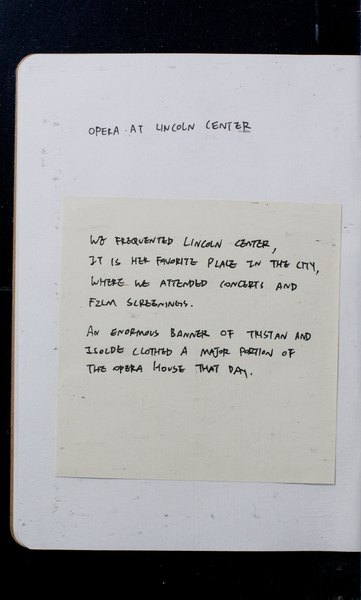 OPERA AT LINCOLN CENTER
WE FREQUENTED LINCOLN CENTER,
IT IS HER FAVORITE PLACE IN THE CITY,
WHERE WE ATTENDED CONCERTS AND
FILM SCREENINGS.
AN ENORMOUS BANNER OF TRISTAN AND
ISOLDE CLOTHED A MAJOR PORTION OF
THE OPERA HOUSE THAT DAY.